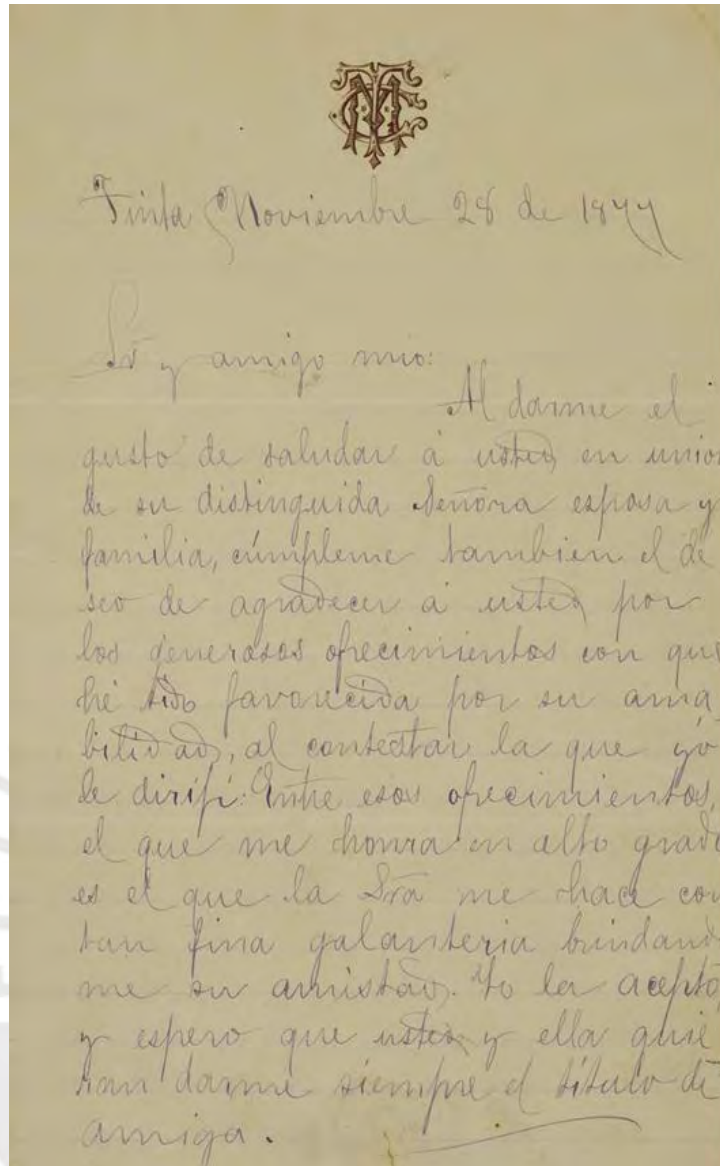 Tinta Noviembre 28 de 1877
Sr y amigo mio:
Al darme el
gusto de saludar á usted en union
de su distinguida Señora esposa y
familia, cúmpleme tambien el de
seo de agradecer á usted por
los generosos ofrecimientos con que
hé sido favorecida por su ama
bilidad, al contestar la que yó
le dirijí. Entre esos ofrecimientos,
el que me honra en alto grado
es el que la Sra me hace con
tan fina galanteria brindando
me su amistad. Yo la acepto,
y espero que usted y ella quie
ran darme siempre el título de
amiga.